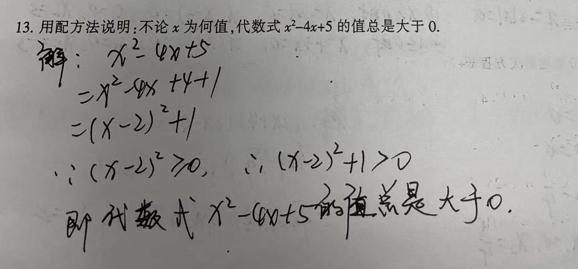 13. 用配方法说明:不论 x 为何值,代数式 x²-4x+5 的值总是大于 0.
解: x²-4x+5
=x²-4x+4+1
=(x-2)²+1
∵(x-2)²≥0, ∴(x-2)²+1>0
即代数式 x²-4x+5的值总是大于0.